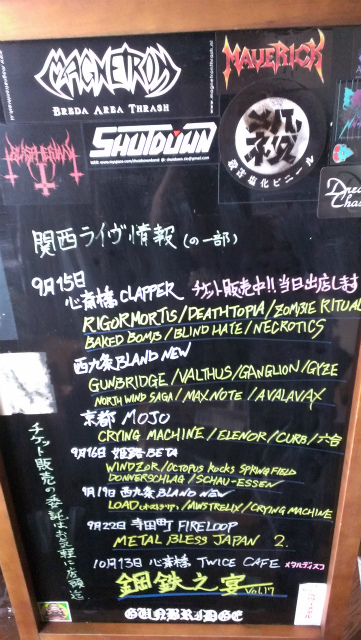 MAGNETRON
BREDA AREA THRASH
www.magnetronthrash.nl
MAVERICK
BLASPHERIAN
SHUTDOWN
メタルバカ
殺害塩化ビニール
関西ライヴ情報(の一部)
9月15日
心斎橋 CLAPPER チケット販売中!!当日出店します
RIGORMORTIS/DEATHTOPIA/ZOMBIE RITUAL
BAKED BOMB/BLIND HATE/NECROTICS
西九条 BLAND NEW
GUNBRIDGE/VALTHUS/GANGLION/GYZE
NORTH WIND SAGA/MAX.NOTE/AVALAVAX
京都 MOJO
CRYING MACHINE/ELENOR/CURB/六合
9月16日 姫路 BETA
WINDZOR/OCTOPUS ROCKS SPRING FIELD
DONNERSCHLAG/SCHAU-ESSEN
9月19日 西九条 BLAND NEW
LOAD/MINSTRELIX/CRYING MACHINE
9月22日 寺田町 FIRELOOP
METAL BLESS JAPAN 2.
10月13日 心斎橋 TWICE CAFE メタルディスコ
鋼鉄之宴 Vol.17
GUNBRIDGE
チケット販売の委託はお気軽に店頭迄